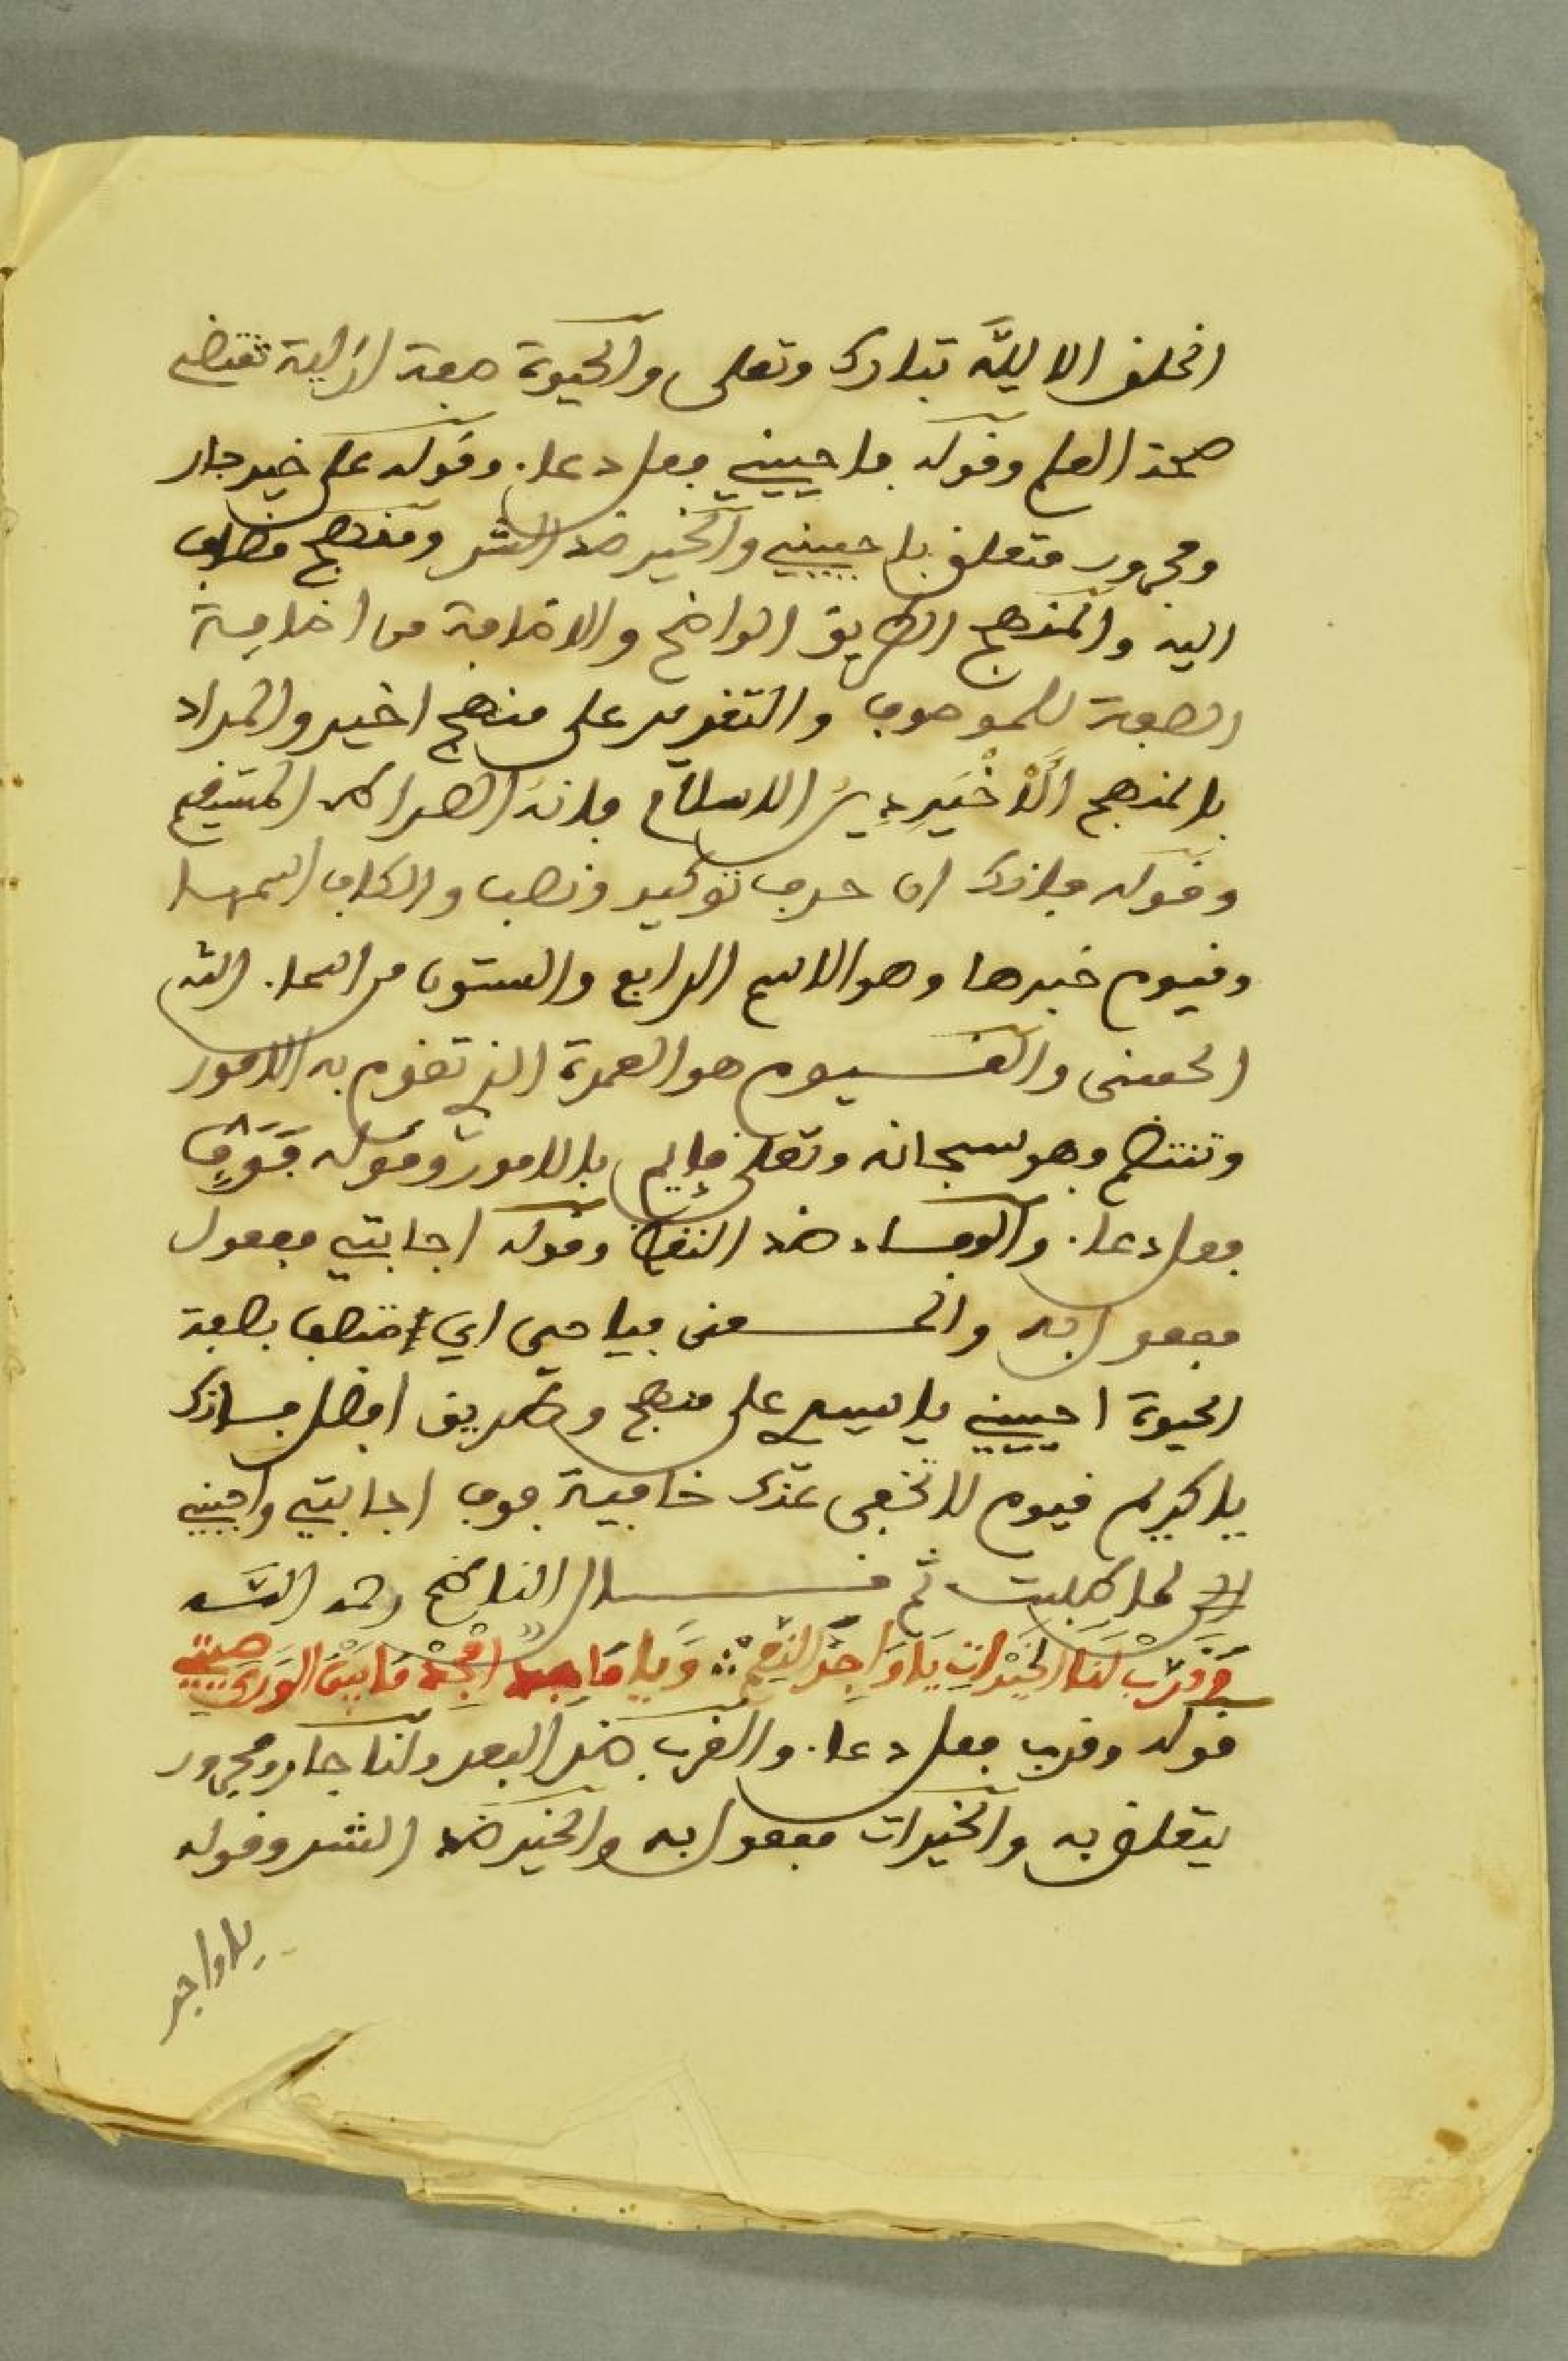 الخلق الا لله تبارك وتعلى والحيوة صفة ازلية تقتضي
صحة العلم وقوله فاحييني فعل دعاء وقوله على خير جار
ومجرور متعلق باحييني والخير ضد الشر ومنهج مضاف
اليه والمنهج الطريق الواضح والاضافة من اضافة
الصفة للموصوف والتقدير على منهج اخير والمراد
بالمنهج الَاخْيَرِ دين الاسلام فانه الصراط المستقيم
وقوله فانك ان حرف توكيد ونصب والكاف اسمها
وقيوم خبرها وهو الاسم الرابع والستون من اسماء الله
الحسنى والقيوم هو العمدة الذي تقوم به الامور
وتنتظم وهو سبحانه وتعلى قايم بالامور وقوله فَوَفِّ
فعل دعاء والوفاء ضد النقض وقوله اجابتي مفعول
مفعول به والمعنى فيا حي اي متصف بصفة
الحيوة احييني يا سيدي على منهج وطريق افضل فانك
يا كريم قيوم لا تخفى عنك خافية فوف اجابتي واجبني
لما طلبت ثم قال الناظم رحمه الله
وَقَرِّبْ لَنَا الخَيْرَاتِ يَا وَاجِدَ النِّعَمْ ∴ وَيَا مَاجِدا امْجِدْ مَا بَيْنَ الوَرَى صيتي
قوله وقرب فعل دعاء والقرب ضد البعد ولنا جار ومجرور
يتعلق به والخيرات مفعول به والخير ضد الشر وقوله
يا واجد